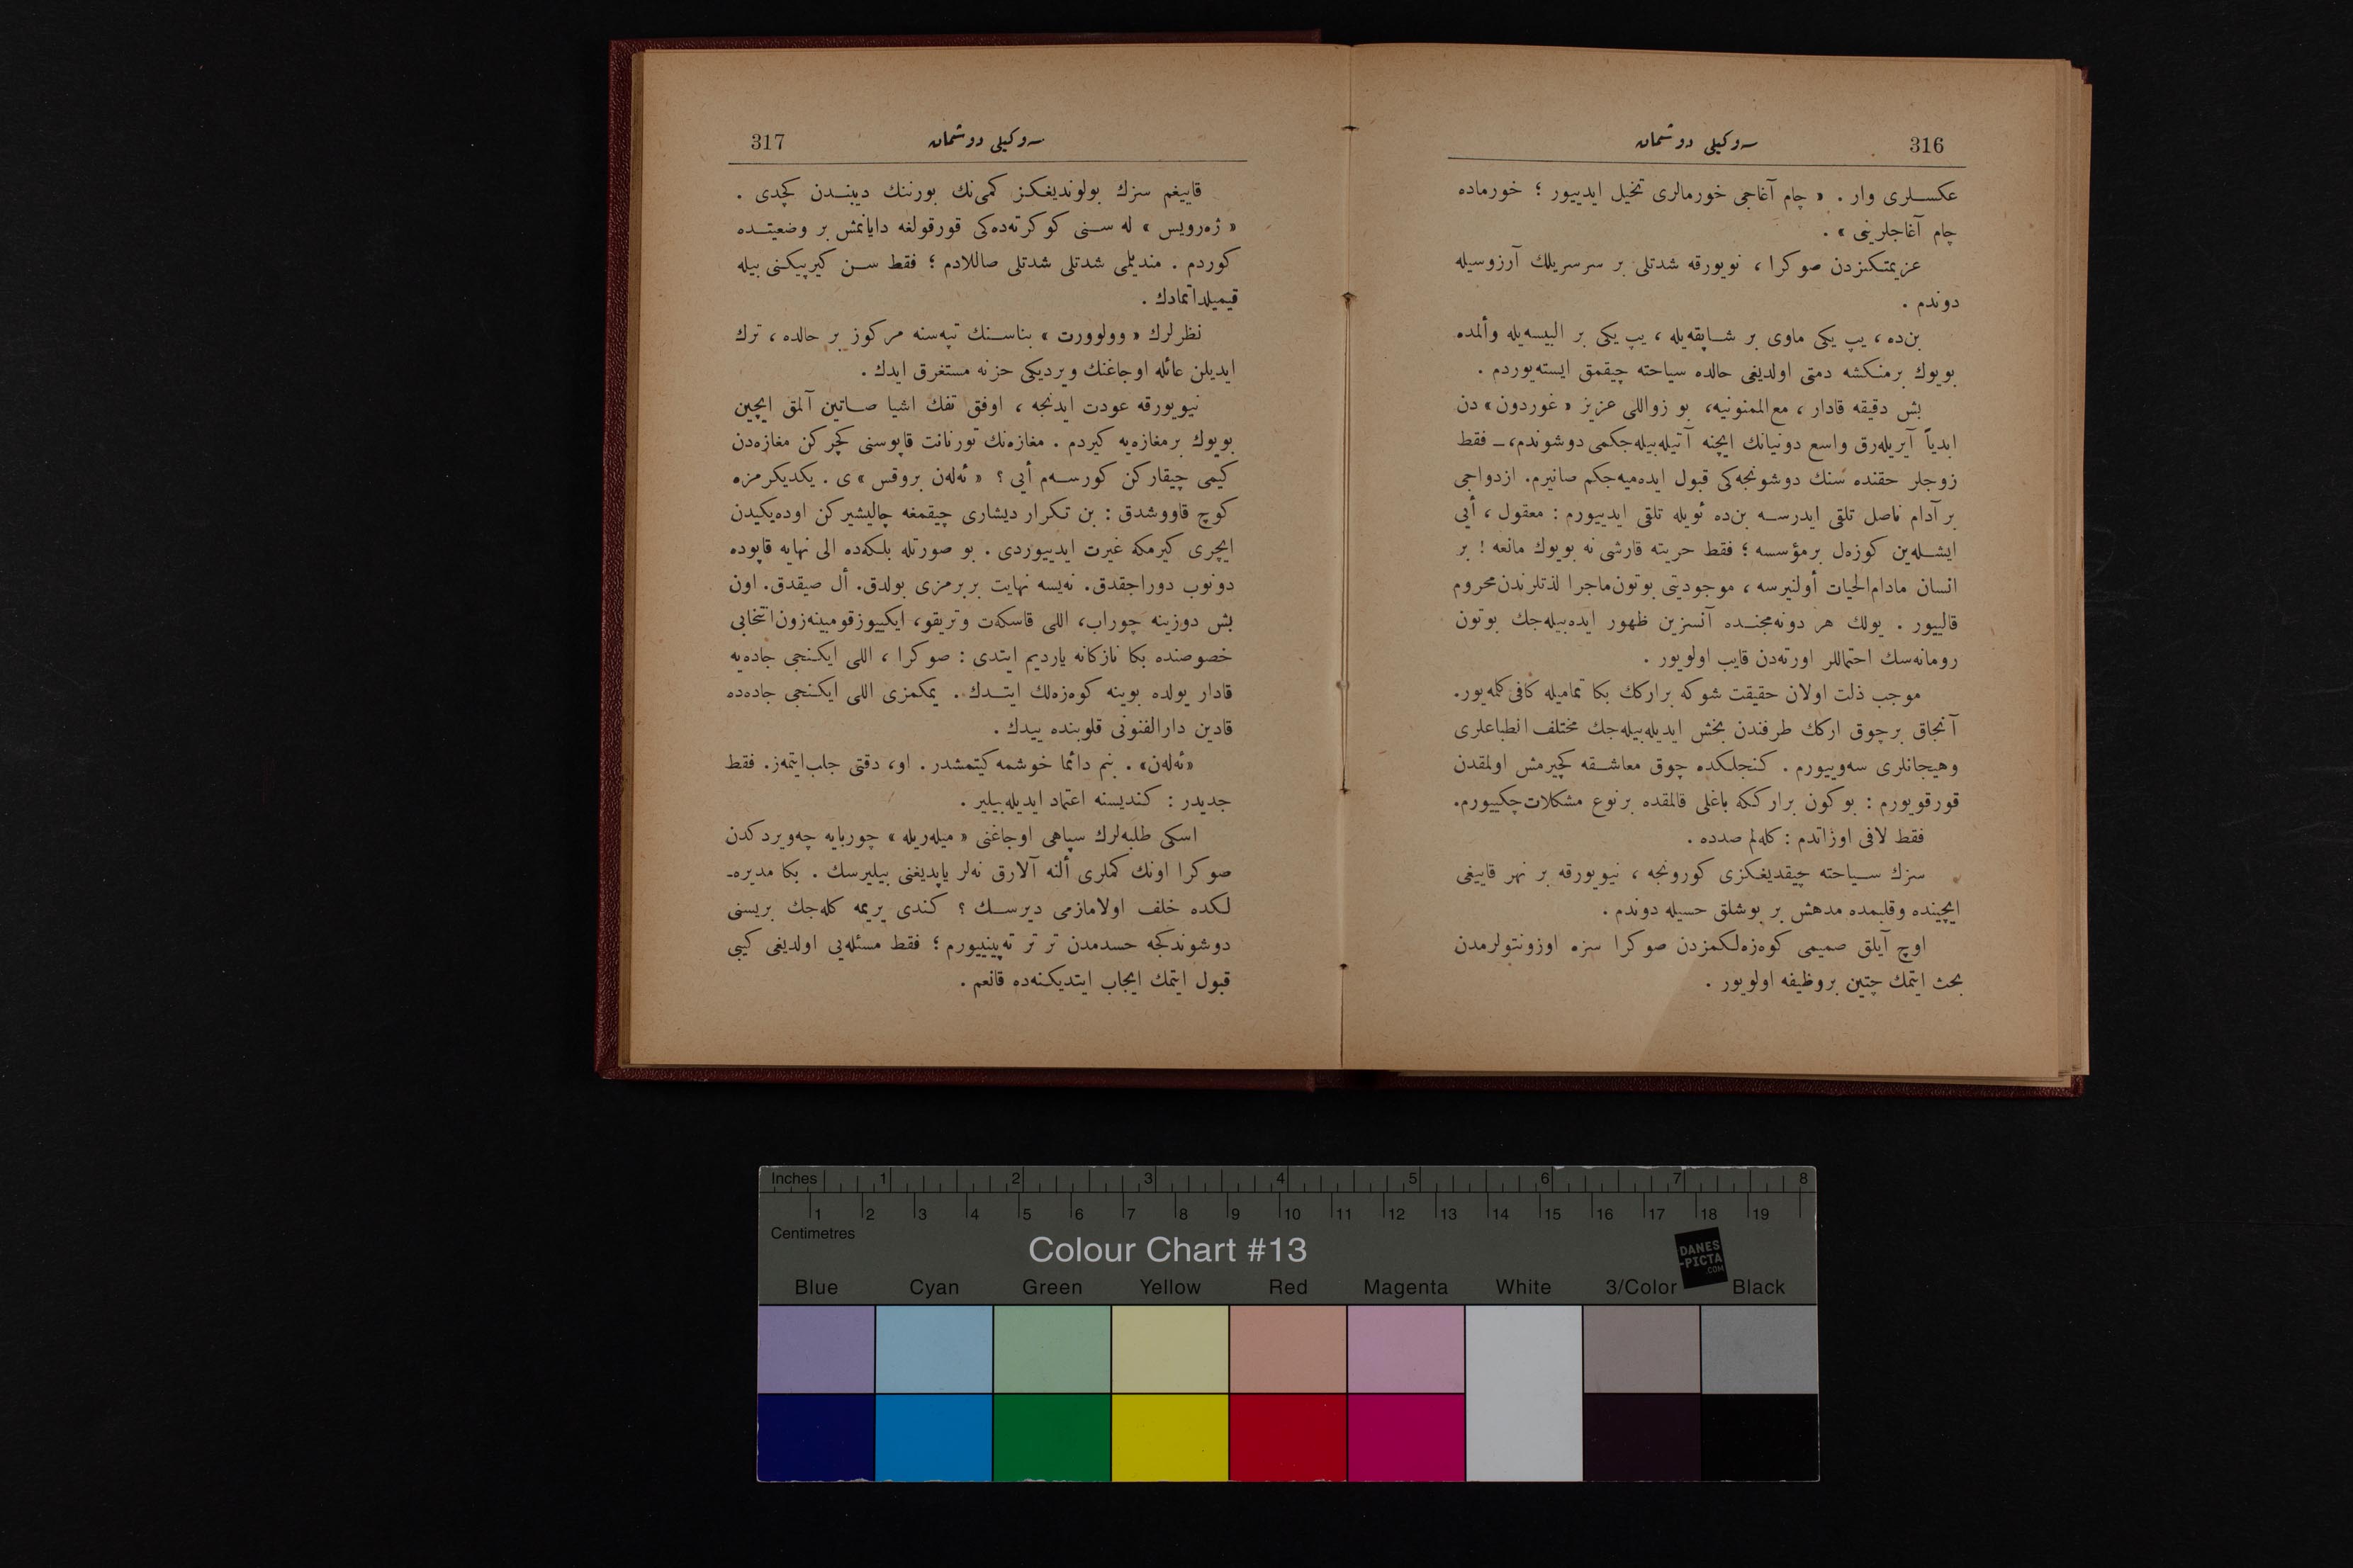 316
سه‌وكيلى دوشمان
عكسلرى وار . « چام آغاجى خورمالرى تخيل ايدييور ؛ خورماده
چام آغاجلرينى » .
عزيمتكزدن صوكرا ، نويورقه شدتلى بر سرسريلك آرزوسيله
دوندم .
بن‌ده ، يپ يكى ماوى بر شاپقه‌يله ، يپ يكى بر البيسه‌يله وألمده
بويوك برمنكشه دمتى اولديغى حالده سياحته چيقمق ايسته‌يوردم .
بش دقيقه قادار ، مع‌الممنونيه، بو زواللى عزيز « غوردون» دن
ابدياً آيريله‌رق واسع دونيانك ايچنه آتيله‌بيله‌جكمى دوشوندم، ــ فقط
زوجلر حقنده سنك دوشونجه‌كى قبول ايده‌ميه‌جكم صانيرم. ازدواجى
بر آدام ناصل تلقى ايدرسه بن‌ده ئويله تلقى ايدييورم : معقول ، أيى
ايشله‌ين كوزه‌ل برمؤسسه ؛ فقط حريته قارشى نه بويوك مانعه ! بر
انسان مادام‌الحيات أولنيرسه ، موجوديتى بوتون‌ماجرا لذتلرندن‌محروم
قالييور . يولك هر دونه‌مجنده آنسزين ظهور ايده‌بيله‌جك بوتون
رومانه‌سك احتماللر اورته‌دن قايب اولويور .
موجب ذلت اولان حقيقت شوكه براركك بكا تماميله كافى كلمه‌يور.
آنجاق برچوق اركك طرفندن بخش ايديله‌بيله‌جك مختلف انطباعلرى
وهيجانلرى سه‌وييورم . كنجلكده چوق معاشقه كچيرمش اولمقدن
قورقويورم : بوكون برارككه باغلى قالمقده برنوع مشكلات‌چكييورم.
فقط لافى اوزاتدم : كله‌لم صدده .
سزك سياحته چيقديغكزى كورونجه ، نيويورقه بر نهر قاييغى
ايچينده وقلبمده مدهش بر بوشلق حسيله دوندم .
اوچ آيلق صميمى كوه‌زه‌لكمزدن صوكرا سزه اوزونتولرمدن
بحث ايتمك چتين بروظيفه اولويور .
317
سه‌وكيلى دوشمان
قاييغم سزك بولونديغكز كمى‌نك بورننك ديبندن كچدى .
« ژه‌رويس » له سنى كوكرته‌ده‌كى قورقولغه دايانمش بر وضعيتده
كوردم . منديلمى شدتلى شدتلى صاللادم ؛ فقط سن كيرپيكنى بيله
قيميلداتمادك .
نظرلرك « وولوورت » بناسنك تپه‌سنه مركوز بر حالده ، ترك
ايديلن عائله اوجاغنك ويرديكى حزنه مستغرق ايدك .
نيويورقه عودت ايدنجه ، اوفق تفك اشيا صاتين آلمق ايچين
بويوك برمغازه‌يه كيردم . مغازه‌نك تورنانت قاپوسنى كچركن مغازه‌دن
كيمى چيقاركن كورسه‌م أيى ؟ « ئه‌له‌ن بروقس » ى . يكديكرمزه
كوچ قاووشدق : بن تكرار ديشارى چيقمغه چاليشيركن اوده‌يكيدن
ايچرى كيرمكه غيرت ايدييوردى . بو صورتله بلكه‌ده الى نهايه قاپوده
دونوب دوراجقدق. نه‌يسه نهايت بربرمزى بولدق. أل صيقدق. اون
بش دوزينه چوراب، اللى قاسكه‌ت وتريقو، ايكييوزقومبينه‌زون‌انتخابى
خصوصنده بكا نازكانه يارديم ايتدى : صوكرا ، اللى ايكنجى جاده‌يه
قادار يولده بوينه كوه‌زه‌لك ايتدك . يمكمزى اللى ايكنجى جاده‌ده
قادين دارالفنونى قلوبنده ييدك .
«ئه‌له‌ن» . بنم دائما خوشمه كيتمشدر . او، دقتى جلب‌ايتمه‌ز. فقط
جديدر : كنديسنه اعتماد ايديله‌بيلير .
اسكى طلبه‌لرك سپاهى اوجاغنى « ميله‌ريله » چوربايه چه‌ويردكدن
صوكرا اونك كملرى ألنه آلارق نه‌لر ياپديغنى بيليرسك . بكا مديره‌ـ
لكده خلف اولامازمى ديرسك ؟ كندى يريمه كله‌جك بريسنى
دوشوندكجه حسدمدن تر تر ته‌پينييورم ؛ فقط مسئله‌يى اولديغى كيبى
قبول ايتمك ايجاب ايتديكنه‌ده قانعم .
Inches 1 2 3 4 5 6 7 8
1 2 3 4 5 6 7 8 9 10 11 12 13 14 15 16 17 18 19
Centimetres
Colour Chart #13
DANES
-PICTA
.COM
Blue Cyan Green Yellow Red Magenta White 3/Color Black